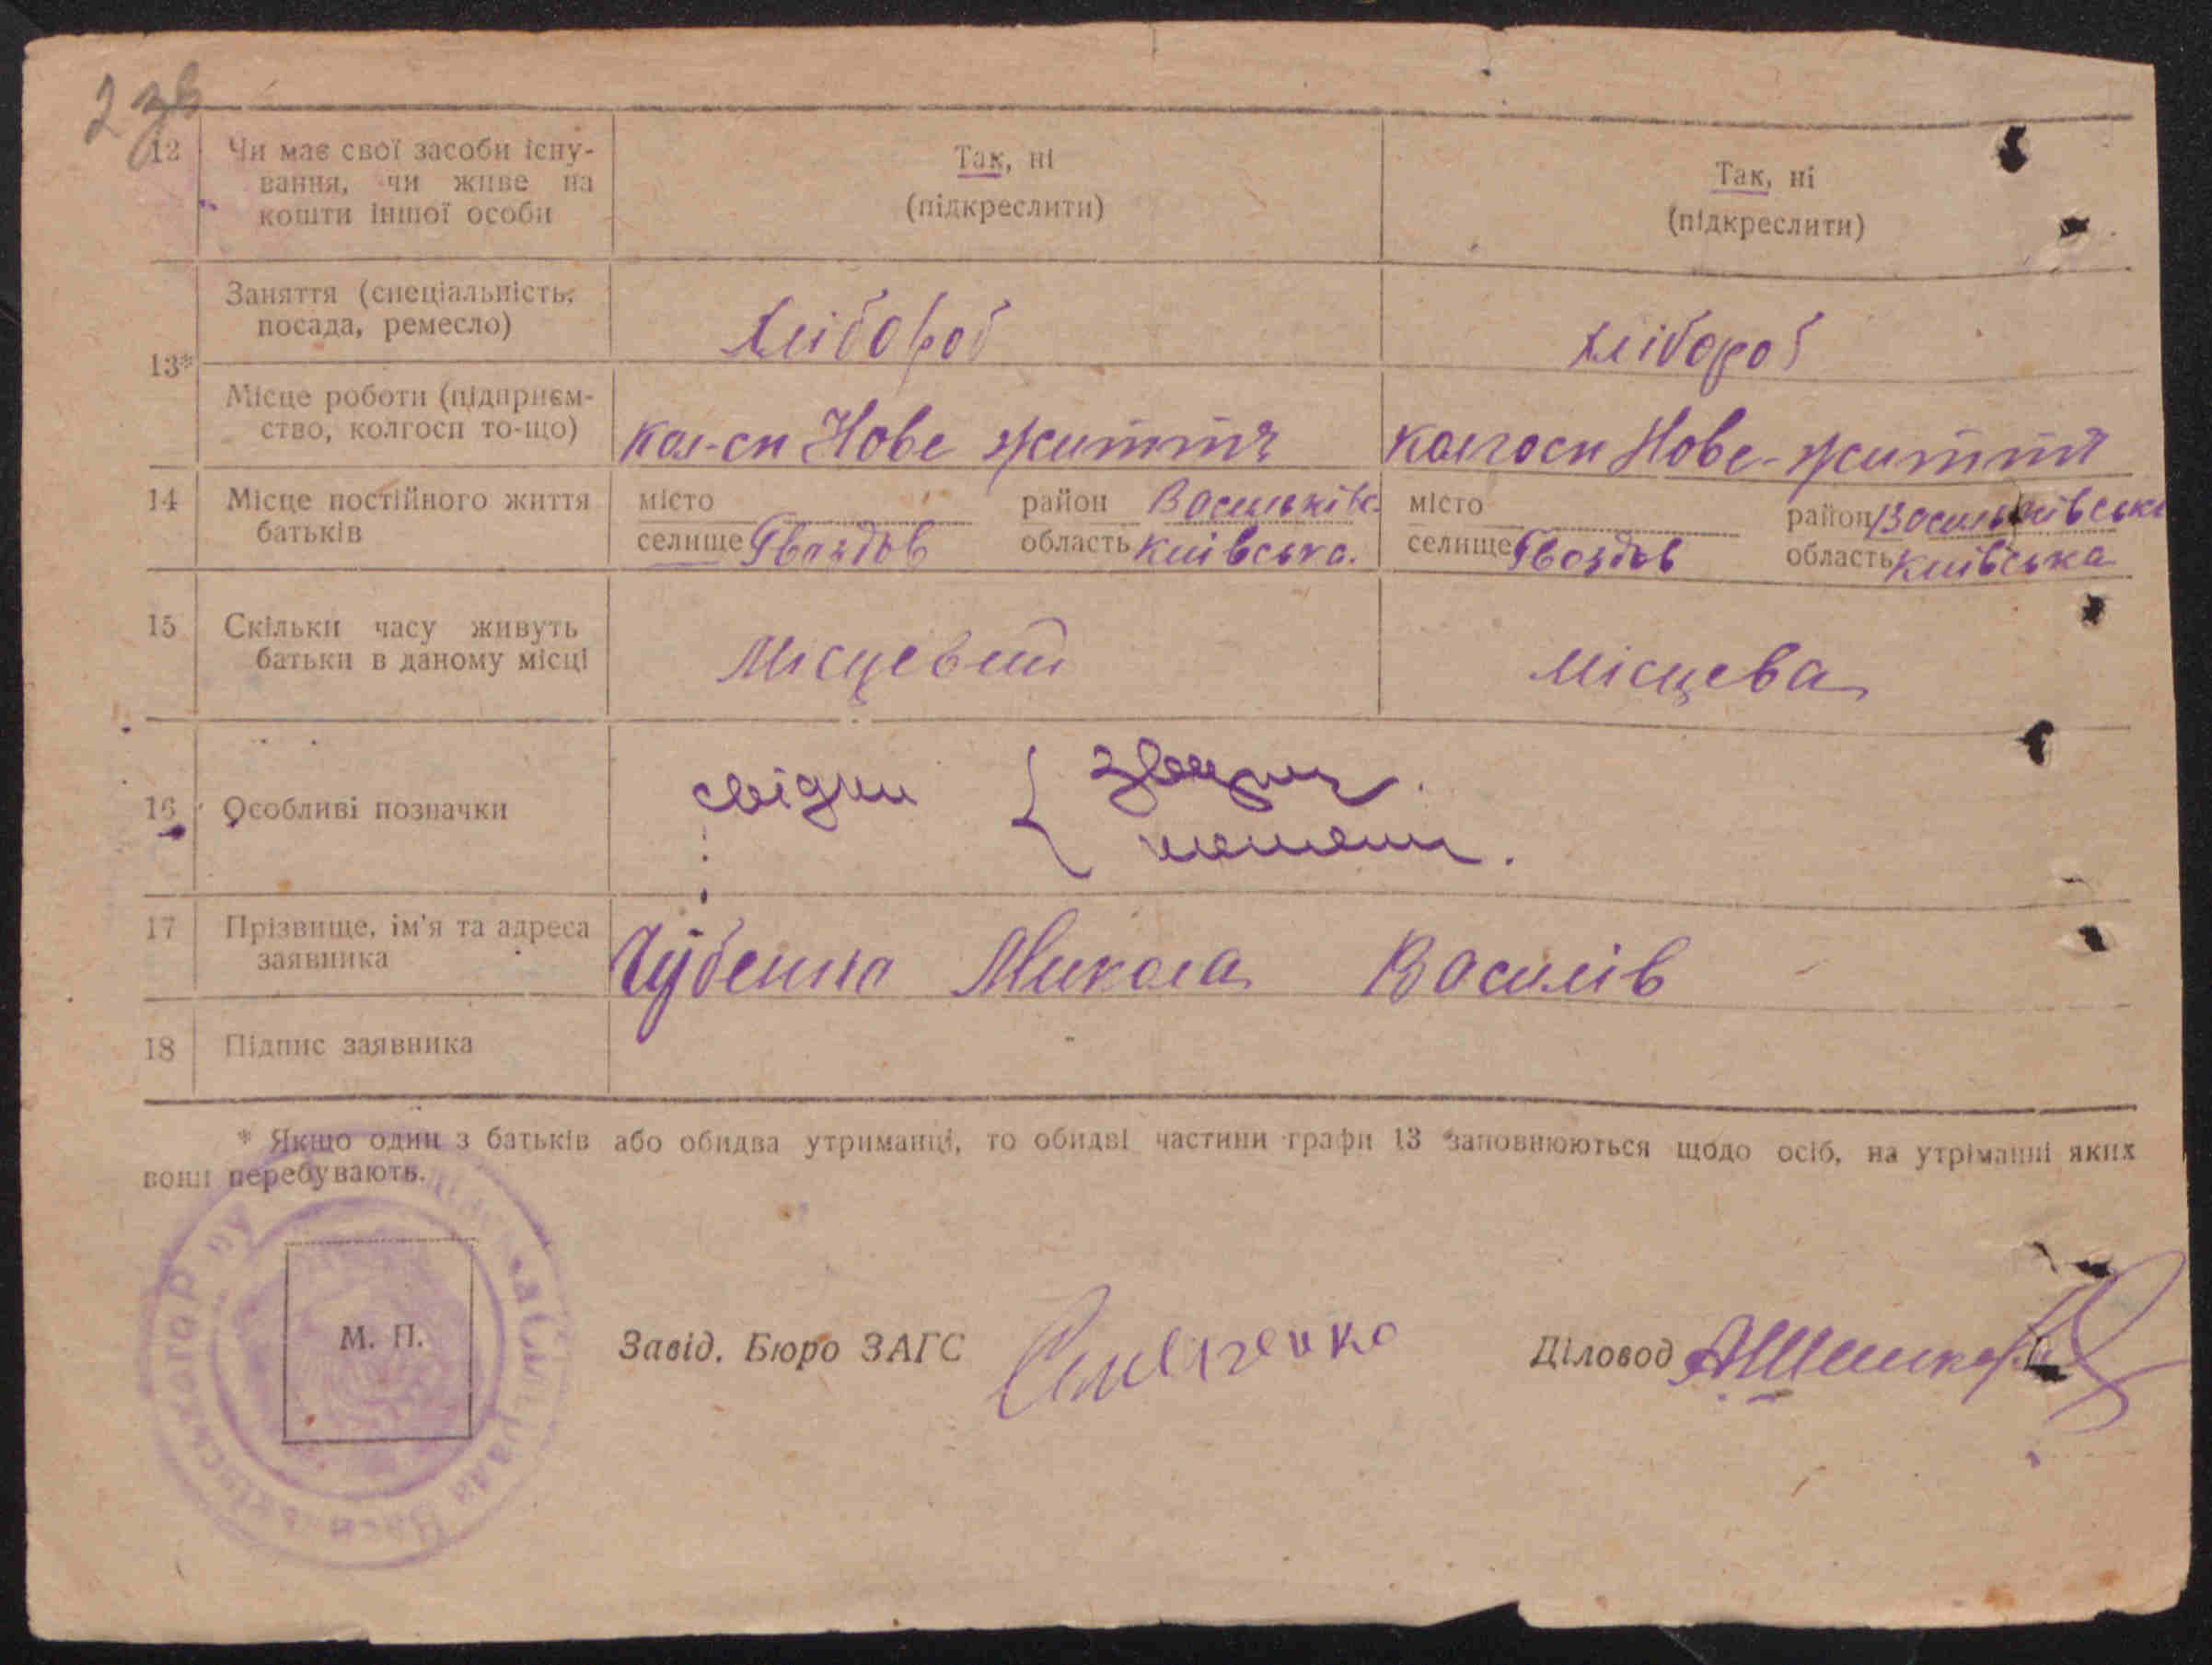 2 зв
12 Чи має свої засоби існу-
вання, чи живе на
кошти іншої особи
Так, ні
(підкреслити)
Так, ні
(підкреслити)
13*
Заняття (спеціальність,
посада, ремесло)
хлібороб
хлібороб
Місце роботи (підприєм-
ство, колгосп то-що)
кол-сп Нове життя
колгосп Нове-життя
14 Місце постійного життя
батьків
місто район Васильківс.
селище Гвоздов область Київська.
місто район Васильківська
селище Гвоздов область Київська
15 Скільки часу живуть
батьки в даному місці
Місцевий
Місцева
16 Особливі позначки
свідки
17 Прізвище, ім'я та адреса
заявника
Чубенко Микола Василів
18 Підпис заявника
* Якщо один з батьків або обидва утриманці, то обидві частини графи 13 заповнюються щодо осіб, на утріманні яких
вони перебувають.
М. П.
Завід. Бюро ЗАГС
Діловод